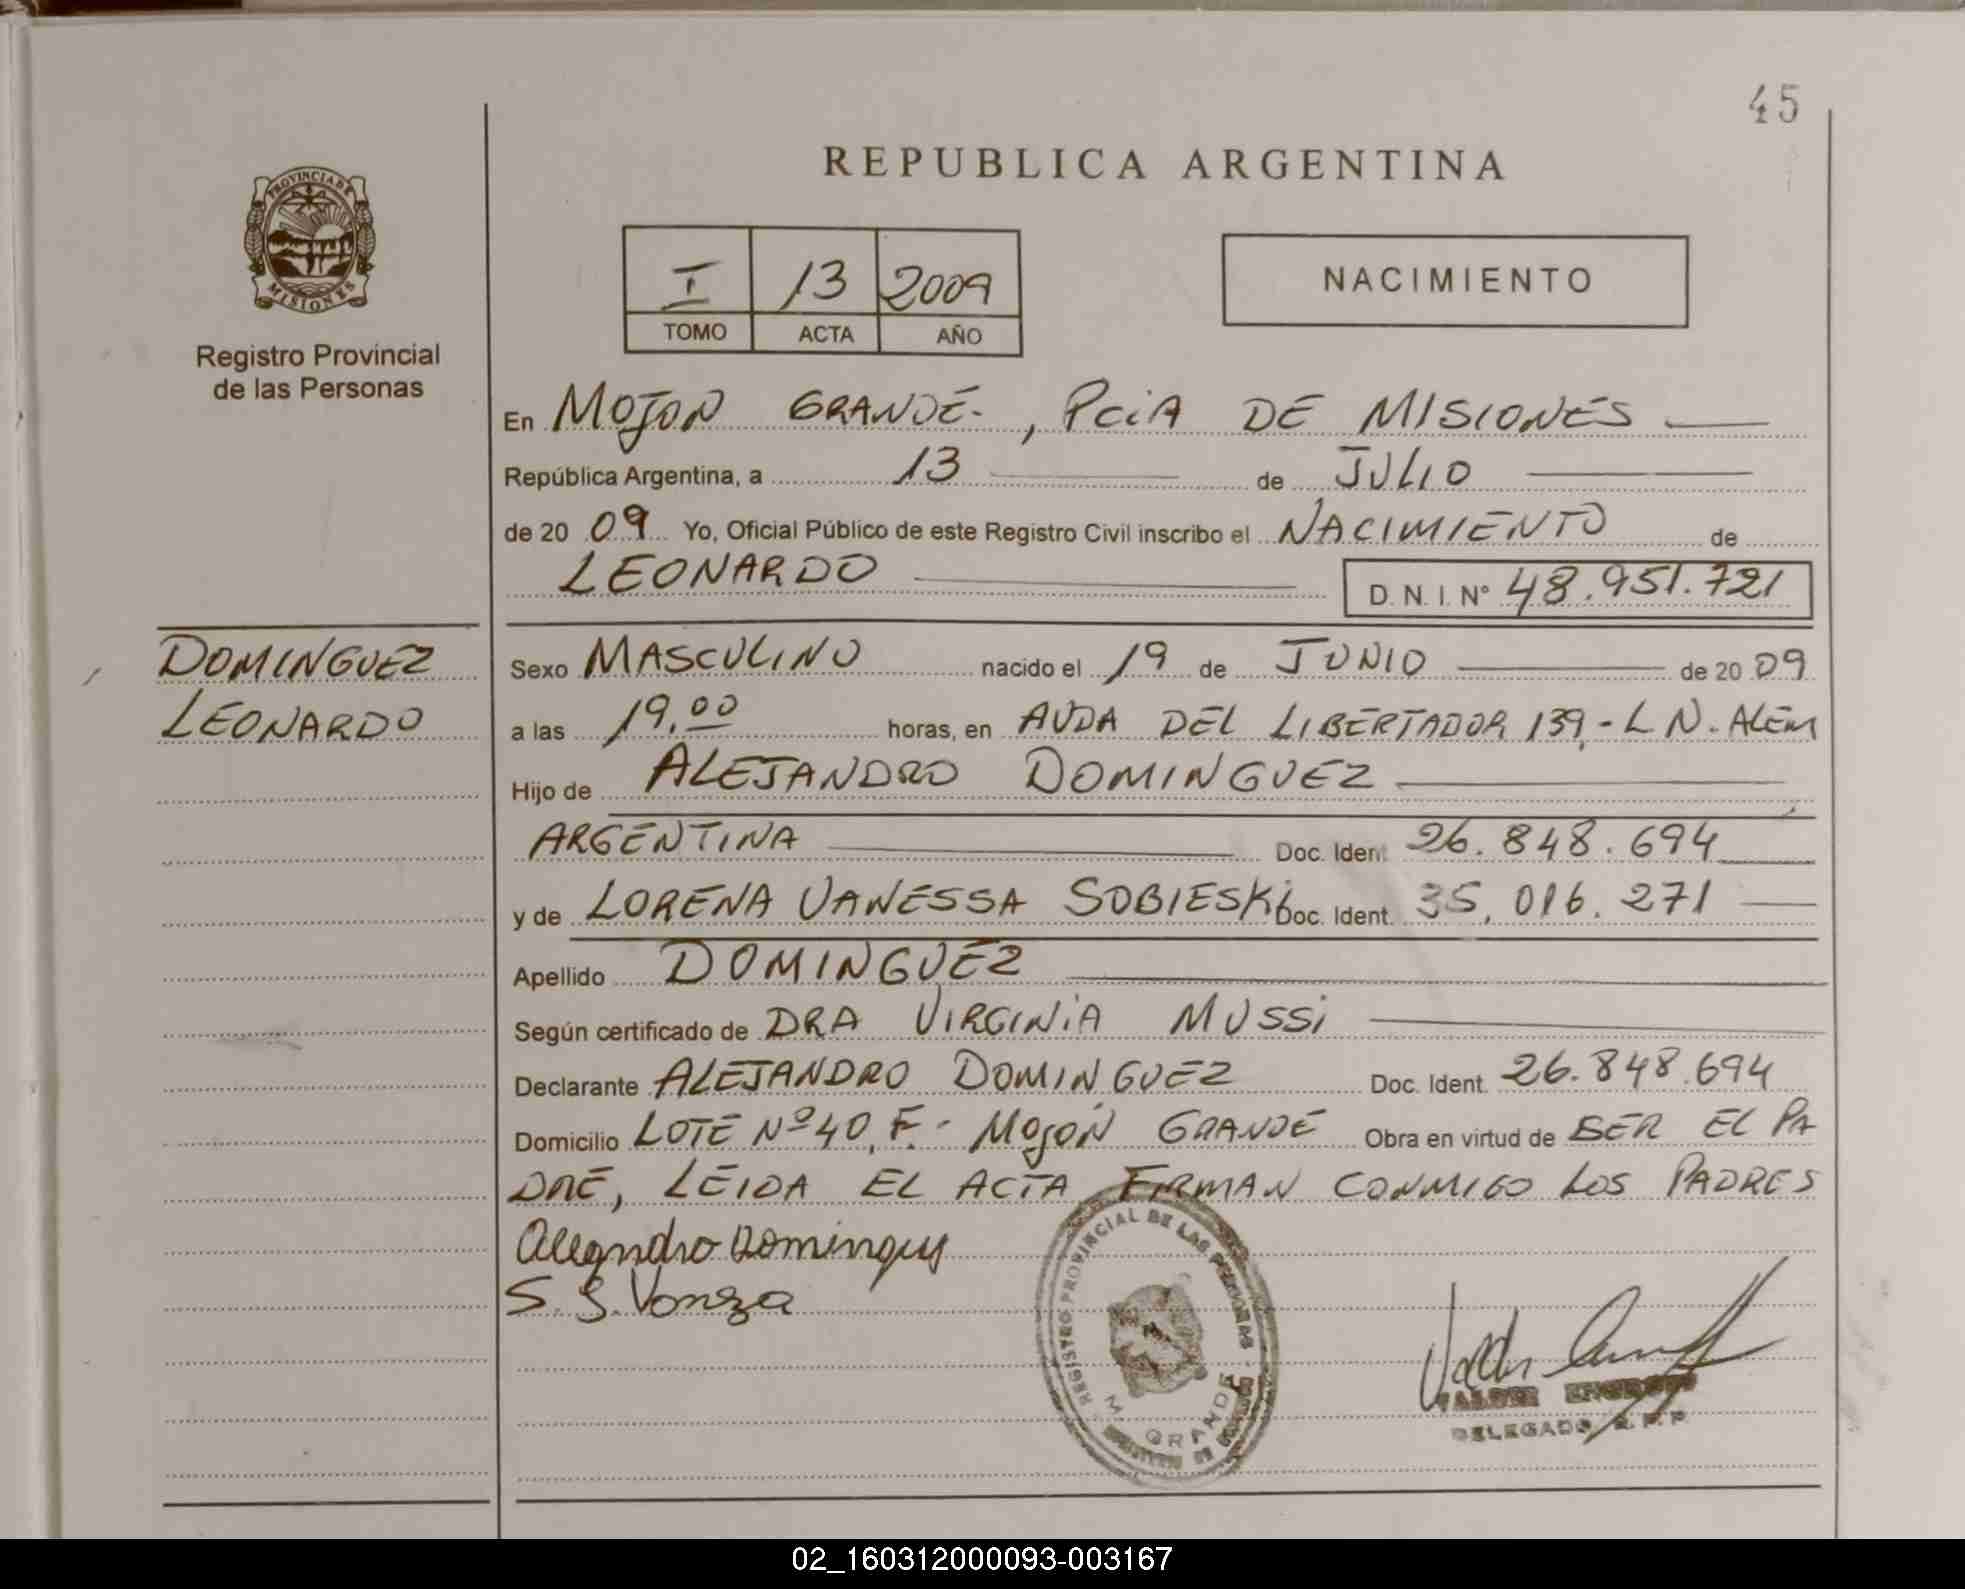 45
REPUBLICA ARGENTINA
PROVINCIA DE
MISIONES
Registro Provincial
de las Personas
I 13 2009
TOMO ACTA AÑO
NACIMIENTO
En MOJON GRANDE-, PCiA DE MISIONES
República Argentina, a 13 de JULIO
de 20 09 Yo, Oficial Público de este Registro Civil inscribo el NACIMIENTO de
LEONARDO D. N. I. N° 48.951.721
DOMINGUEZ
LEONARDO
Sexo MASCULINO nacido el 19 de JUNIO de 20 09
a las 19,00 horas, en AVDA DEL LIBERTADOR 139,- L N. ALEM
Hijo de ALEJANDRO DOMINGUEZ
ARGENTINA Doc. Ident 26.848.694
y de LORENA VANESSA SOBIESKi Doc. Ident. 35.016.271
Apellido DOMINGUEZ
Según certificado de DRA VIRGINiA MUSSi
Declarante ALEJANDRO DOMINGUEZ Doc. Ident. 26.848.694
Domicilio LOTE Nº 40, F.- MOJON GRANDE Obra en virtud de SER EL PA
DRE, LEIDA EL ACTA FIRMAN CONMIGO LOS PADRES
Alejandro Dominguez
REGISTRO PROVINCIAL DE LAS PERSONAS
M. GRANDE
DELEGADO R.P.P
02_160312000093-003167